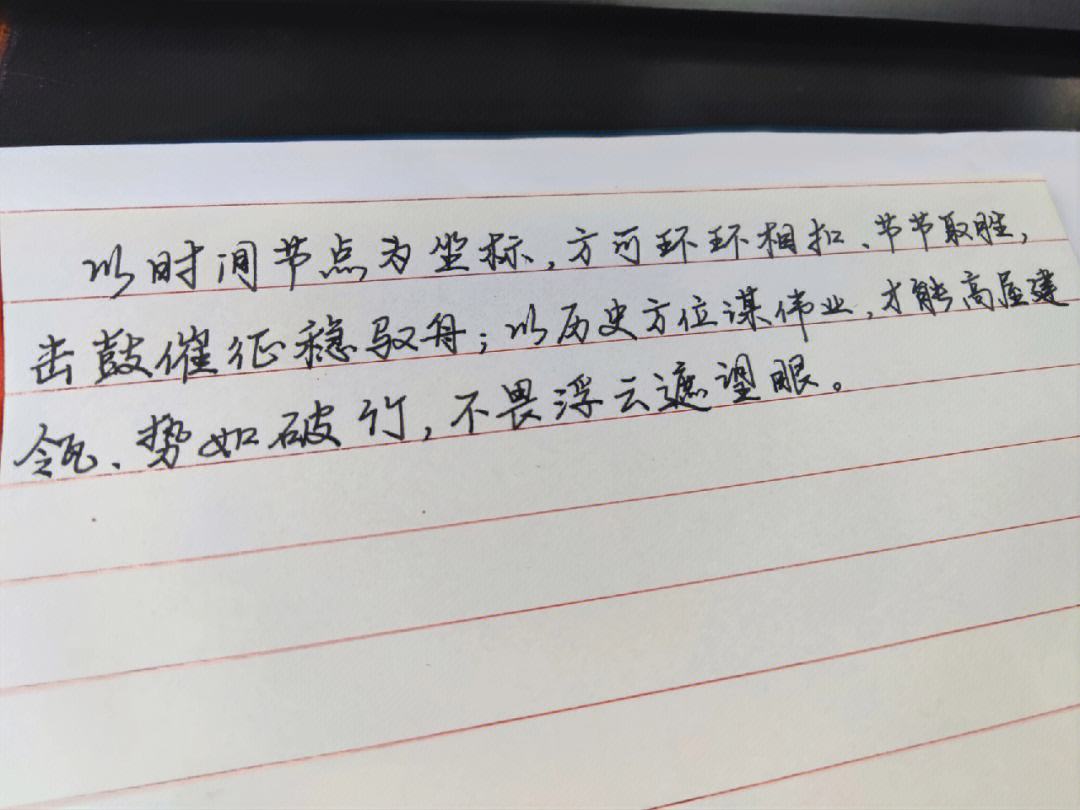 以时间节点为坐标，方可环环相扣、节节取胜，
击鼓催征稳驭舟；以历史方位谋伟业，才能高屋建
瓴、势如破竹，不畏浮云遮望眼。